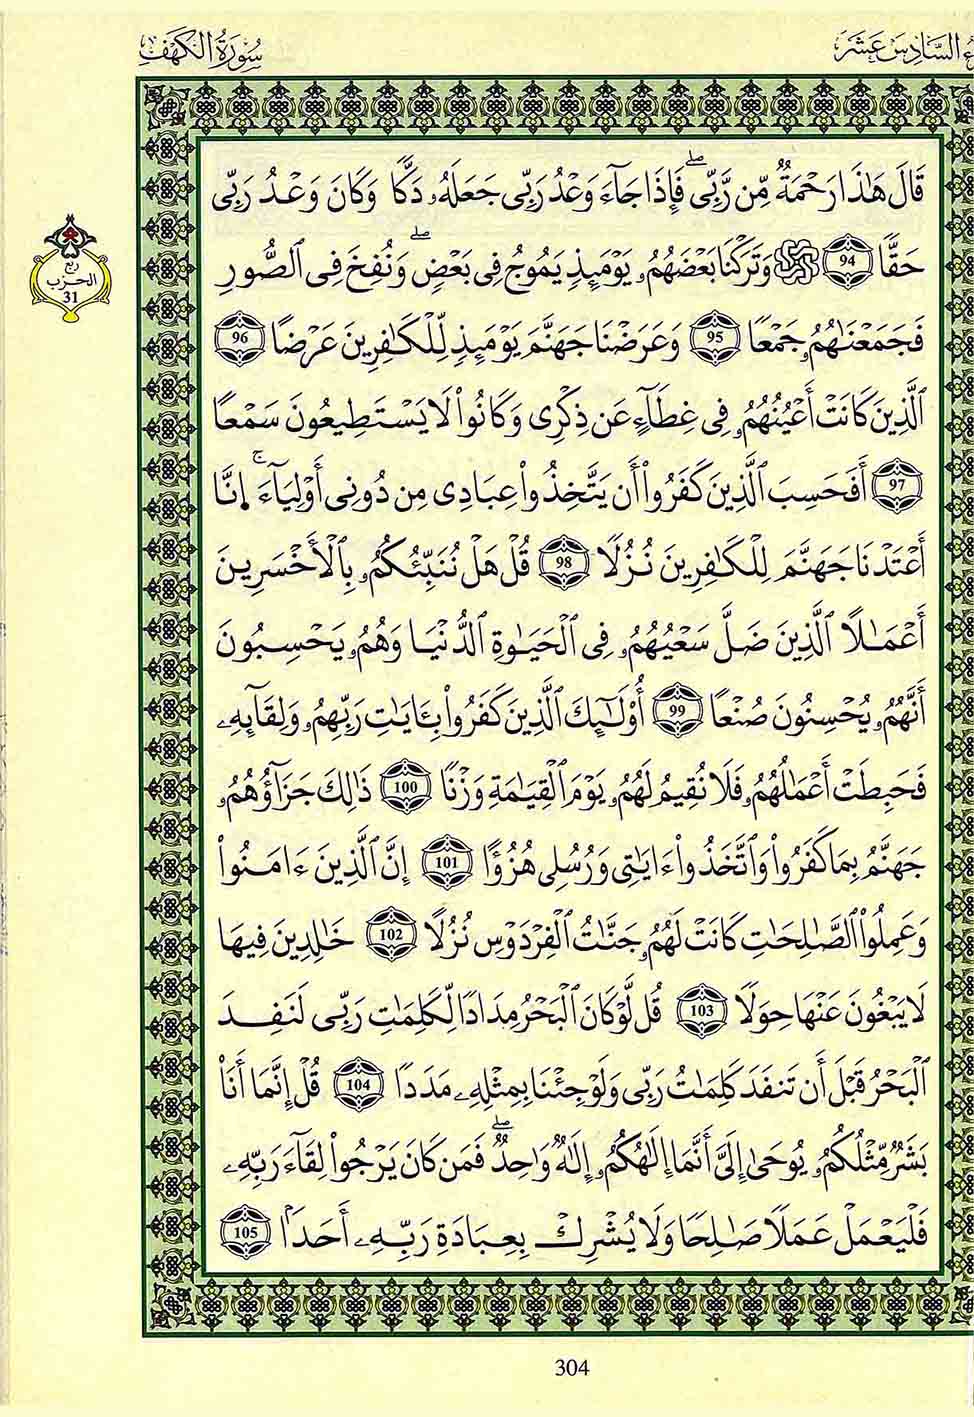 ء السَّادِسَ عَشَرَ
سُورَةُ الكَهْفِ
قَالَ هَـٰذَا رَحْمَةٌ مِّن رَّبِّى ۖ فَإِذَا جَآءَ وَعْدُ رَبِّى جَعَلَهُۥ دَكًّا وَكَانَ وَعْدُ رَبِّى
حَقًّا 94 ۞ وَتَرَكْنَا بَعْضَهُمُۥ يَوْمَئِذٍ يَمُوجُ فِى بَعْضٍ ۖ وَنُفِخَ فِى ٱلصُّورِ
فَجَمَعْنَـٰهُمُۥ جَمْعًا 95 وَعَرَضْنَا جَهَنَّمَ يَوْمَئِذٍ لِّلْكَـٰفِرِينَ عَرْضًا 96
ٱلَّذِينَ كَانَتْ أَعْيُنُهُمُۥ فِى غِطَآءٍ عَن ذِكْرِى وَكَانُوا۟ لَا يَسْتَطِيعُونَ سَمْعًا
97 أَفَحَسِبَ ٱلَّذِينَ كَفَرُوٓا۟ أَن يَتَّخِذُوا۟ عِبَادِى مِن دُونِى أَوْلِيَآءَ ۚ اِنَّا
أَعْتَدْنَا جَهَنَّمَ لِلْكَـٰفِرِينَ نُزُلًا 98 قُلْ هَلْ نُنَبِّئُكُمُۥ بِٱلْأَخْسَرِينَ
أَعْمَـٰلًا ٱلَّذِينَ ضَلَّ سَعْيُهُمُۥ فِى ٱلْحَيَوٰةِ ٱلدُّنْيَا وَهُمُۥ يَحْسِبُونَ
أَنَّهُمُۥ يُحْسِنُونَ صُنْعًا 99 أُو۟لَـٰٓئِكَ ٱلَّذِينَ كَفَرُوا۟ بِـَٔايَـٰتِ رَبِّهِمُۥ وَلِقَآئِهِۦ
فَحَبِطَتْ أَعْمَـٰلُهُمُۥ فَلَا نُقِيمُ لَهُمُۥ يَوْمَ ٱلْقِيَـٰمَةِ وَزْنًا 100 ذَٰلِكَ جَزَآؤُهُمُۥ
جَهَنَّمُ بِمَا كَفَرُوا۟ وَٱتَّخَذُوٓا۟ ءَايَـٰتِى وَرُسُلِى هُزُؤًا 101 إِنَّ ٱلَّذِينَ ءَامَنُوا۟
وَعَمِلُوا۟ ٱلصَّـٰلِحَـٰتِ كَانَتْ لَهُمُۥ جَنَّـٰتُ ٱلْفِرْدَوْسِ نُزُلًا 102 خَـٰلِدِينَ فِيهَا
لَا يَبْغُونَ عَنْهَا حِوَلًا 103 قُل لَّوْ كَانَ ٱلْبَحْرُ مِدَادًا لِّكَلِمَـٰتِ رَبِّى لَنَفِدَ
ٱلْبَحْرُ قَبْلَ أَن تَنفَدَ كَلِمَـٰتُ رَبِّى وَلَوْ جِئْنَا بِمِثْلِهِۦ مَدَدًا 104 قُلْ إِنَّمَآ أَنَا۠
بَشَرٌ مِّثْلُكُمُۥ يُوحَىٰٓ إِلَىَّ أَنَّمَآ إِلَـٰهُكُمُۥ إِلَـٰهٌ وَٰحِدٌ ۖ فَمَن كَانَ يَرْجُوا۟ لِقَآءَ رَبِّهِۦ
فَلْيَعْمَلْ عَمَلًا صَـٰلِحًا وَلَا يُشْرِكْ بِعِبَادَةِ رَبِّهِۦٓ أَحَدًا 105
ربع
الحزب
31
304